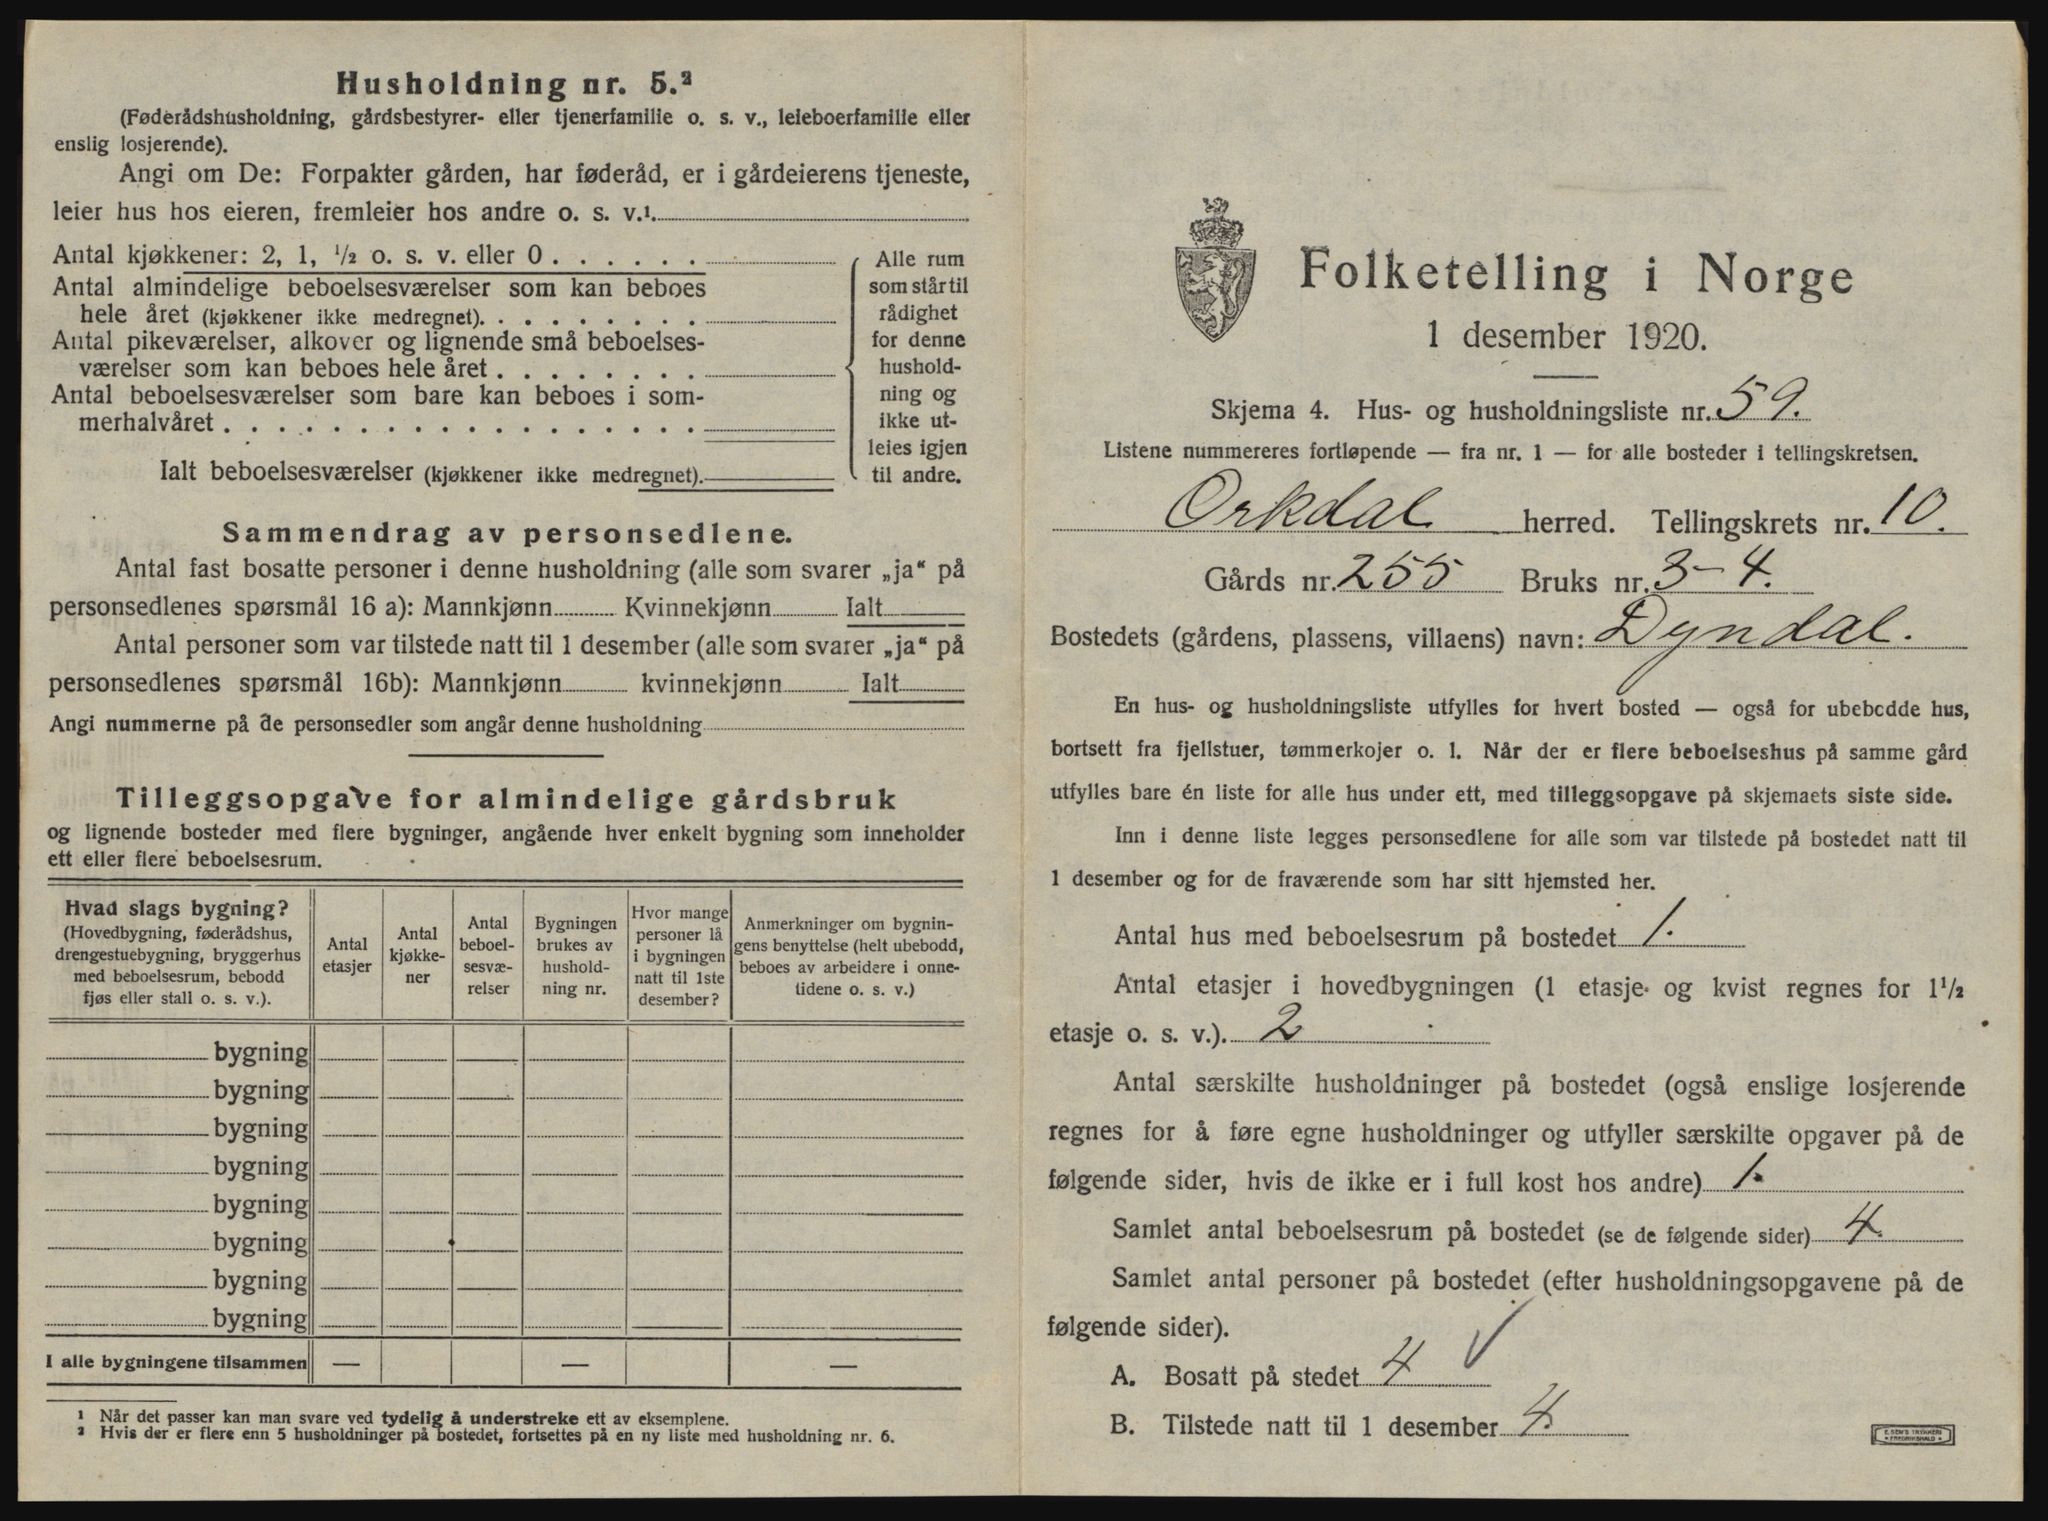 Husholdning nr. 5.²
(Føderådshusholdning, gårdsbestyrer- eller tjenerfamilie o. s. v., leieboerfamilie eller
enslig losjerende).
Angi om De: Forpakter gården, har føderåd, er i gårdeierens tjeneste,
leier hus hos eieren, fremleier hos andre o. s. v.¹.
Antal kjøkkener: 2, 1, ½ o. s. v. eller 0 . . . . . .
Antal almindelige beboelsesværelser som kan beboes
hele året (kjøkkener ikke medregnet). . . . . . . . .
Antal pikeværelser, alkover og lignende små beboelses-
værelser som kan beboes hele året . . . . . . . .
Antal beboelsesværelser som bare kan beboes i som-
merhalvåret . . . . . . . . . . . . . . . . . .
Ialt beboelsesværelser (kjøkkener ikke medregnet).
Alle rum
som står til
rådighet
for denne
hushold-
ning og
ikke ut-
leies igjen
til andre.
Sammendrag av personsedlene.
Antal fast bosatte personer i denne husholdning (alle som svarer „ja“ på
personsedlenes spørsmål 16 a): Mannkjønn Kvinnekjønn Ialt
Antal personer som var tilstede natt til 1 desember (alle som svarer „ja“ på
personsedlenes spørsmål 16b): Mannkjønn kvinnekjønn Ialt
Angi nummerne på de personsedler som angår denne husholdning
Tilleggsopgave for almindelige gårdsbruk
og lignende bosteder med flere bygninger, angående hver enkelt bygning som inneholder
ett eller flere beboelsesrum.
Hvad slags bygning?
(Hovedbygning, føderådshus,
drengestuebygning, bryggerhus
med beboelsesrum, bebodd
fjøs eller stall o. s. v.).
Antal
etasjer
Antal
kjøkke-
ner
Antal
beboel-
sesvæ-
relser
Bygningen
brukes av
hushold-
ning nr.
Hvor mange
personer lå
i bygningen
natt til 1ste
desember?
Anmerkninger om bygnin-
gens benyttelse (helt ubebodd,
beboes av arbeidere i onne-
tidene o. s. v.)
bygning
bygning
bygning
bygning
bygning
bygning
bygning
bygning
I alle bygningene tilsammen — — —
¹ Når det passer kan man svare ved tydelig å understreke ett av eksemplene.
² Hvis der er flere enn 5 husholdninger på bostedet, fortsettes på en ny liste med husholdning nr. 6.
Folketelling i Norge
1 desember 1920.
Skjema 4. Hus- og husholdningsliste nr. 59.
Listene nummereres fortløpende — fra nr. 1 — for alle bosteder i tellingskretsen.
Orkdal herred. Tellingskrets nr. 10.
Gårds nr. 255 Bruks nr. 3-4.
Bostedets (gårdens, plassens, villaens) navn: Dyndal.
En hus- og husholdningsliste utfylles for hvert bosted — også for ubebodde hus,
bortsett fra fjellstuer, tømmerkojer o. l. Når der er flere beboelseshus på samme gård
utfylles bare én liste for alle hus under ett, med tilleggsopgave på skjemaets siste side.
Inn i denne liste legges personsedlene for alle som var tilstede på bostedet natt til
1 desember og for de fraværende som har sitt hjemsted her.
Antal hus med beboelsesrum på bostedet 1.
Antal etasjer i hovedbygningen (1 etasje og kvist regnes for 1½
etasje o. s. v.). 2
Antal særskilte husholdninger på bostedet (også enslige losjerende
regnes for å føre egne husholdninger og utfyller særskilte opgaver på de
følgende sider, hvis de ikke er i full kost hos andre) 1.
Samlet antal beboelsesrum på bostedet (se de følgende sider) 4.
Samlet antal personer på bostedet (efter husholdningsopgavene på de
følgende sider).
A. Bosatt på stedet 4 ✓
B. Tilstede natt til 1 desember 4.
E. SEM'S TRYKKERI
• FREDRIKSHALD •